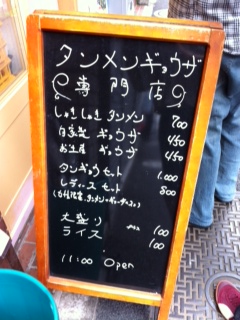 タンメンギョウザ
専門店
しゃきしゃき タンメン 700
自家製 ギョウザ 450
お土産 ギョウザ 450
タンギョウセット 1.000
レディースセット 800
大盛り 100
ライス 100
11:00 Open